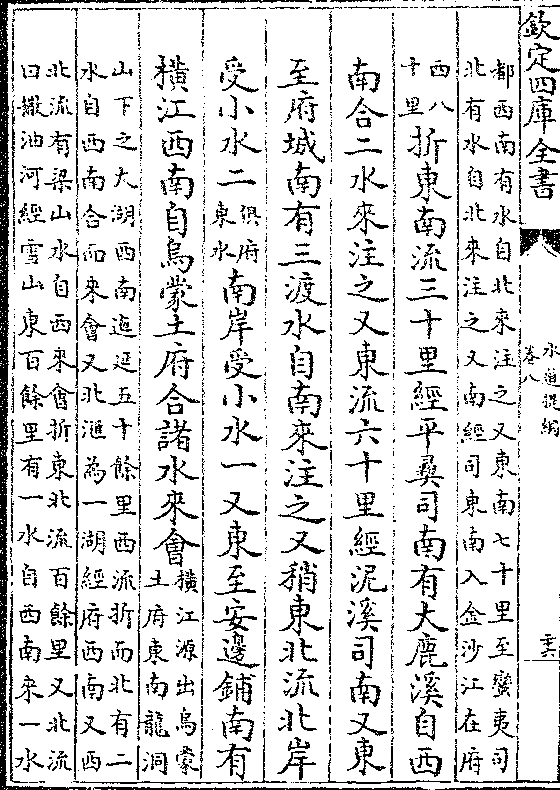 欽定四庫全書
水道提綱
卷八
二十六
都西南有水自北來注之又東南七十里至蠻夷司
北有水自北來注之又南經司東南入金沙江在府
西八
十里
折東南流三十里經平彝司南有大鹿溪自西
南合二水來注之又東流六十里經泥溪司南又東
至府城南有三渡水自南來注之又稍東北流北岸
受小水二
俱府
東水
南岸受小水一又東至安邊鋪南有
橫江西南自烏蒙土府合諸水來會
橫江源出烏蒙
土府東南龍洞
山下之大湖西南迤延五十餘里西流折而北有二
水自西南合而來會又北滙為一湖經府西南又西
北流有梁山水自西來會折東北流百餘里又北流
曰撒油河經雪山東百餘里有一水自西南來一水